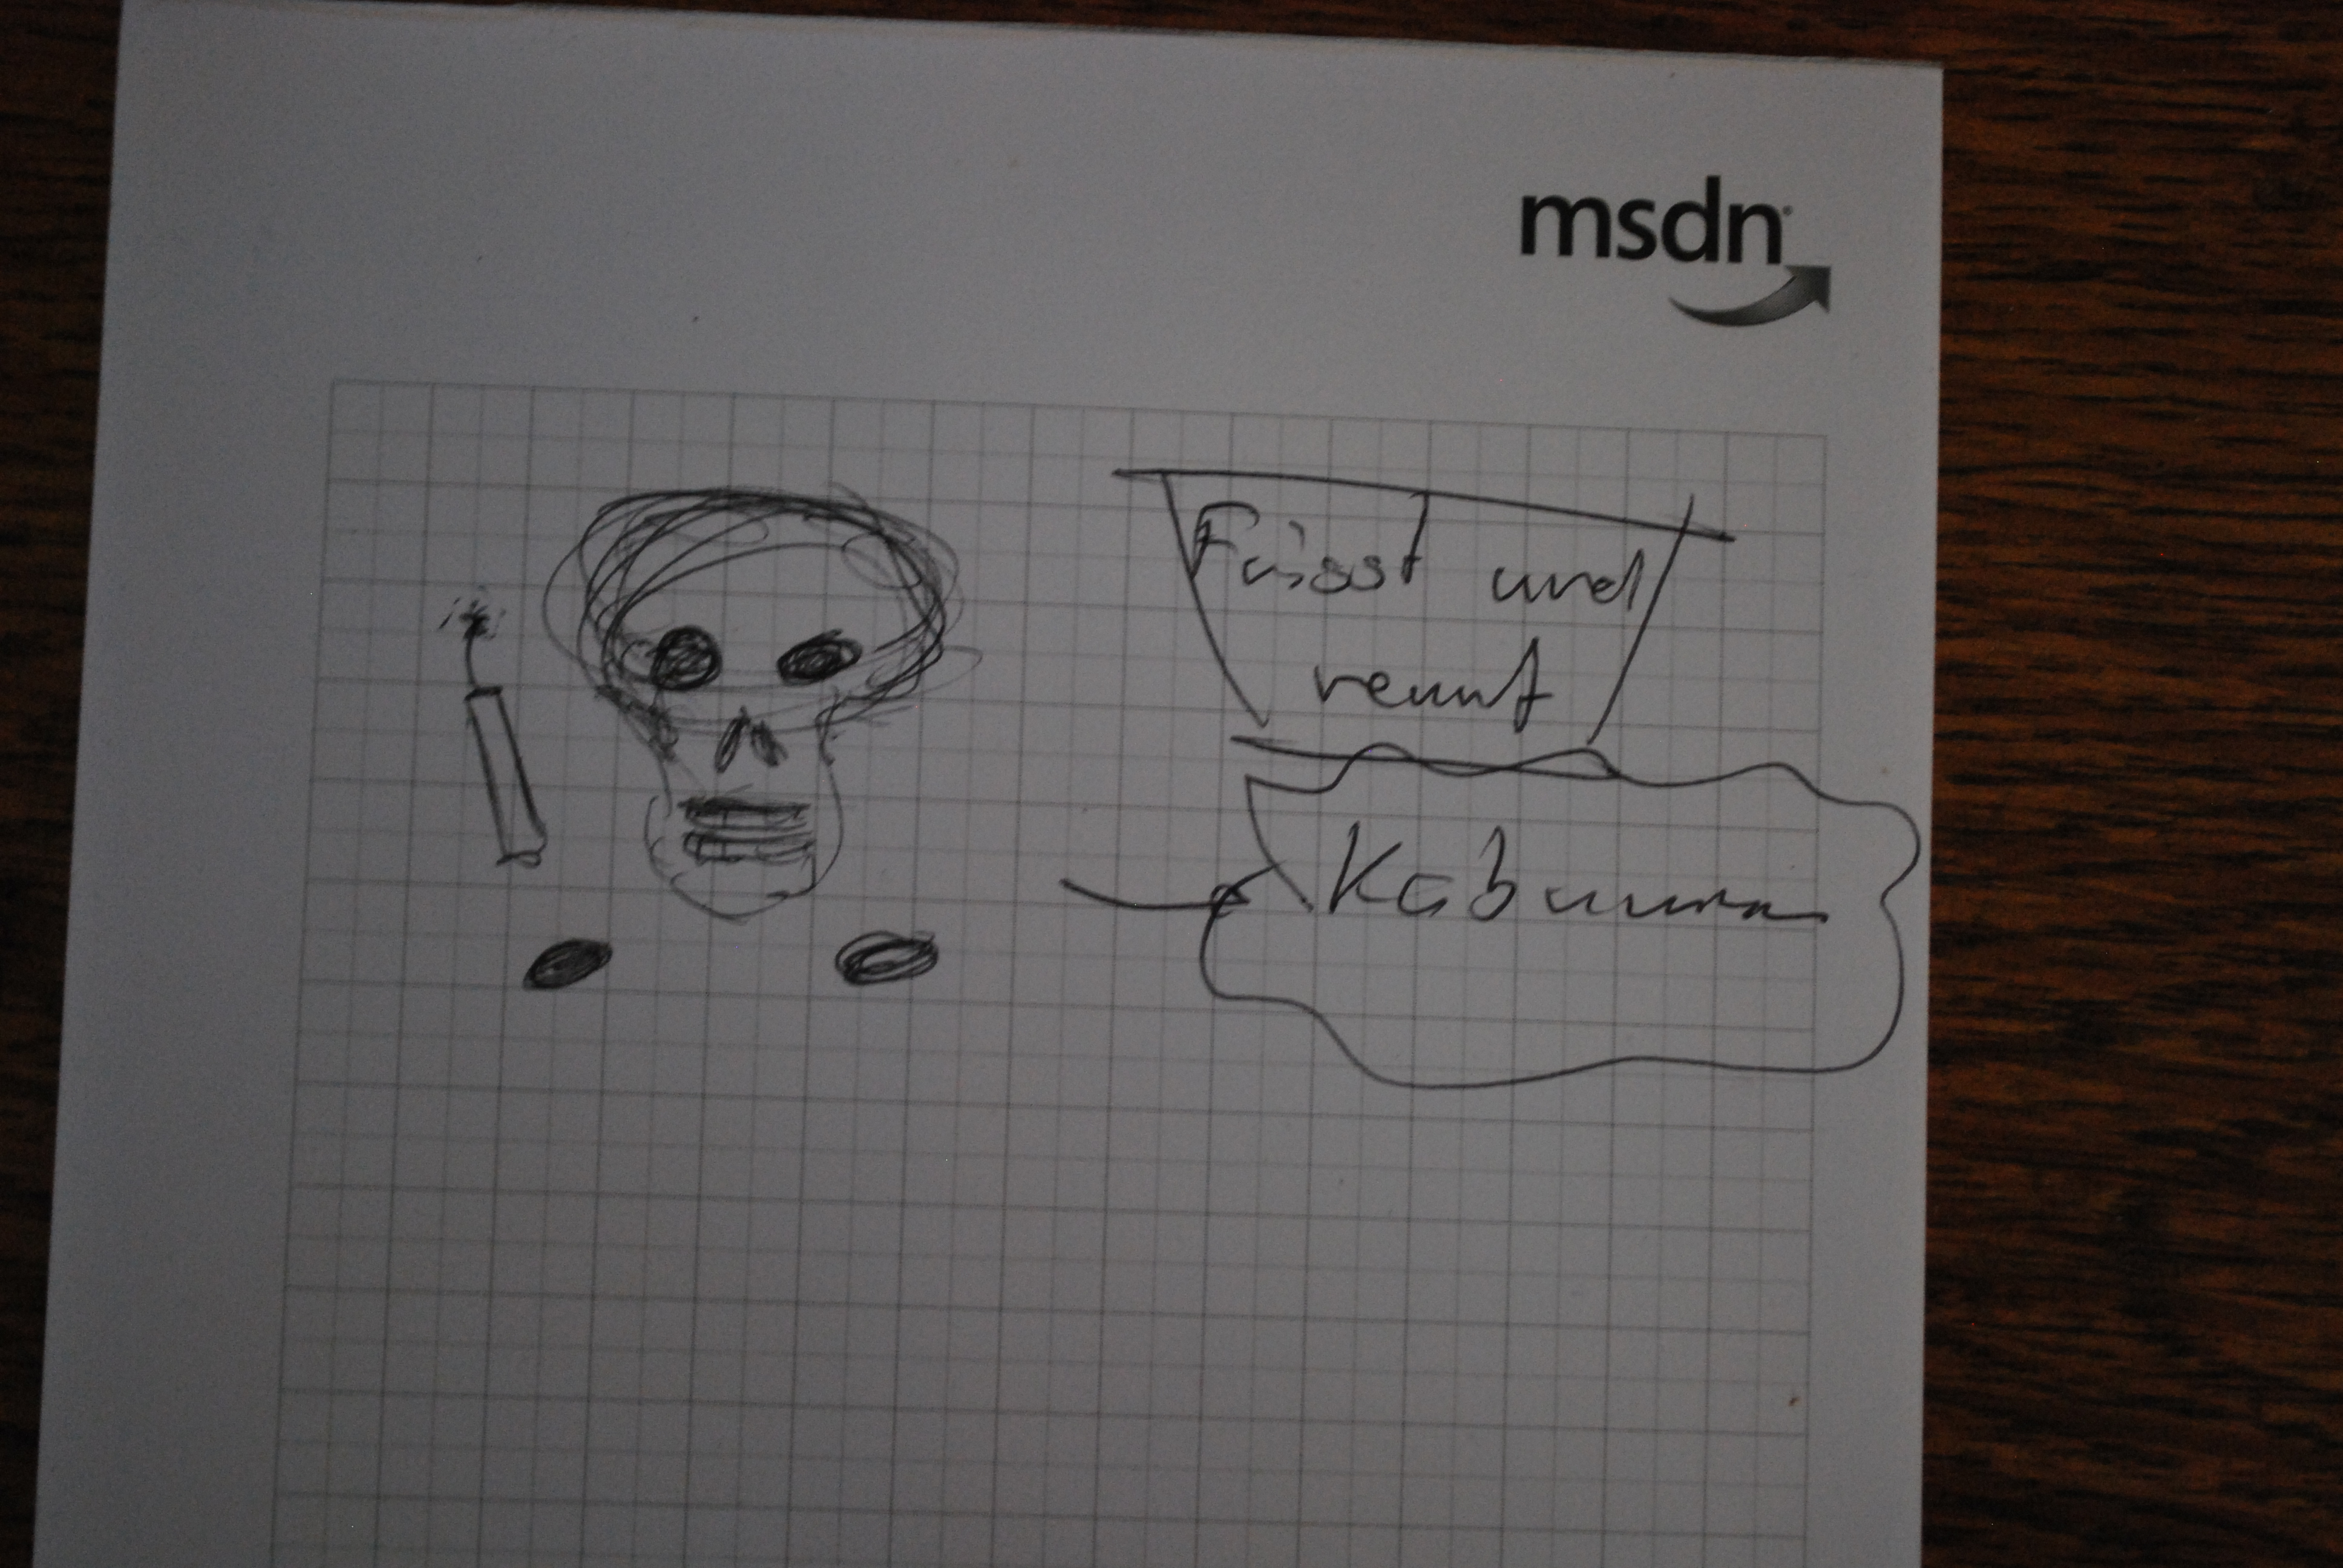 msdn
Frisst und
rennt
Kabumm